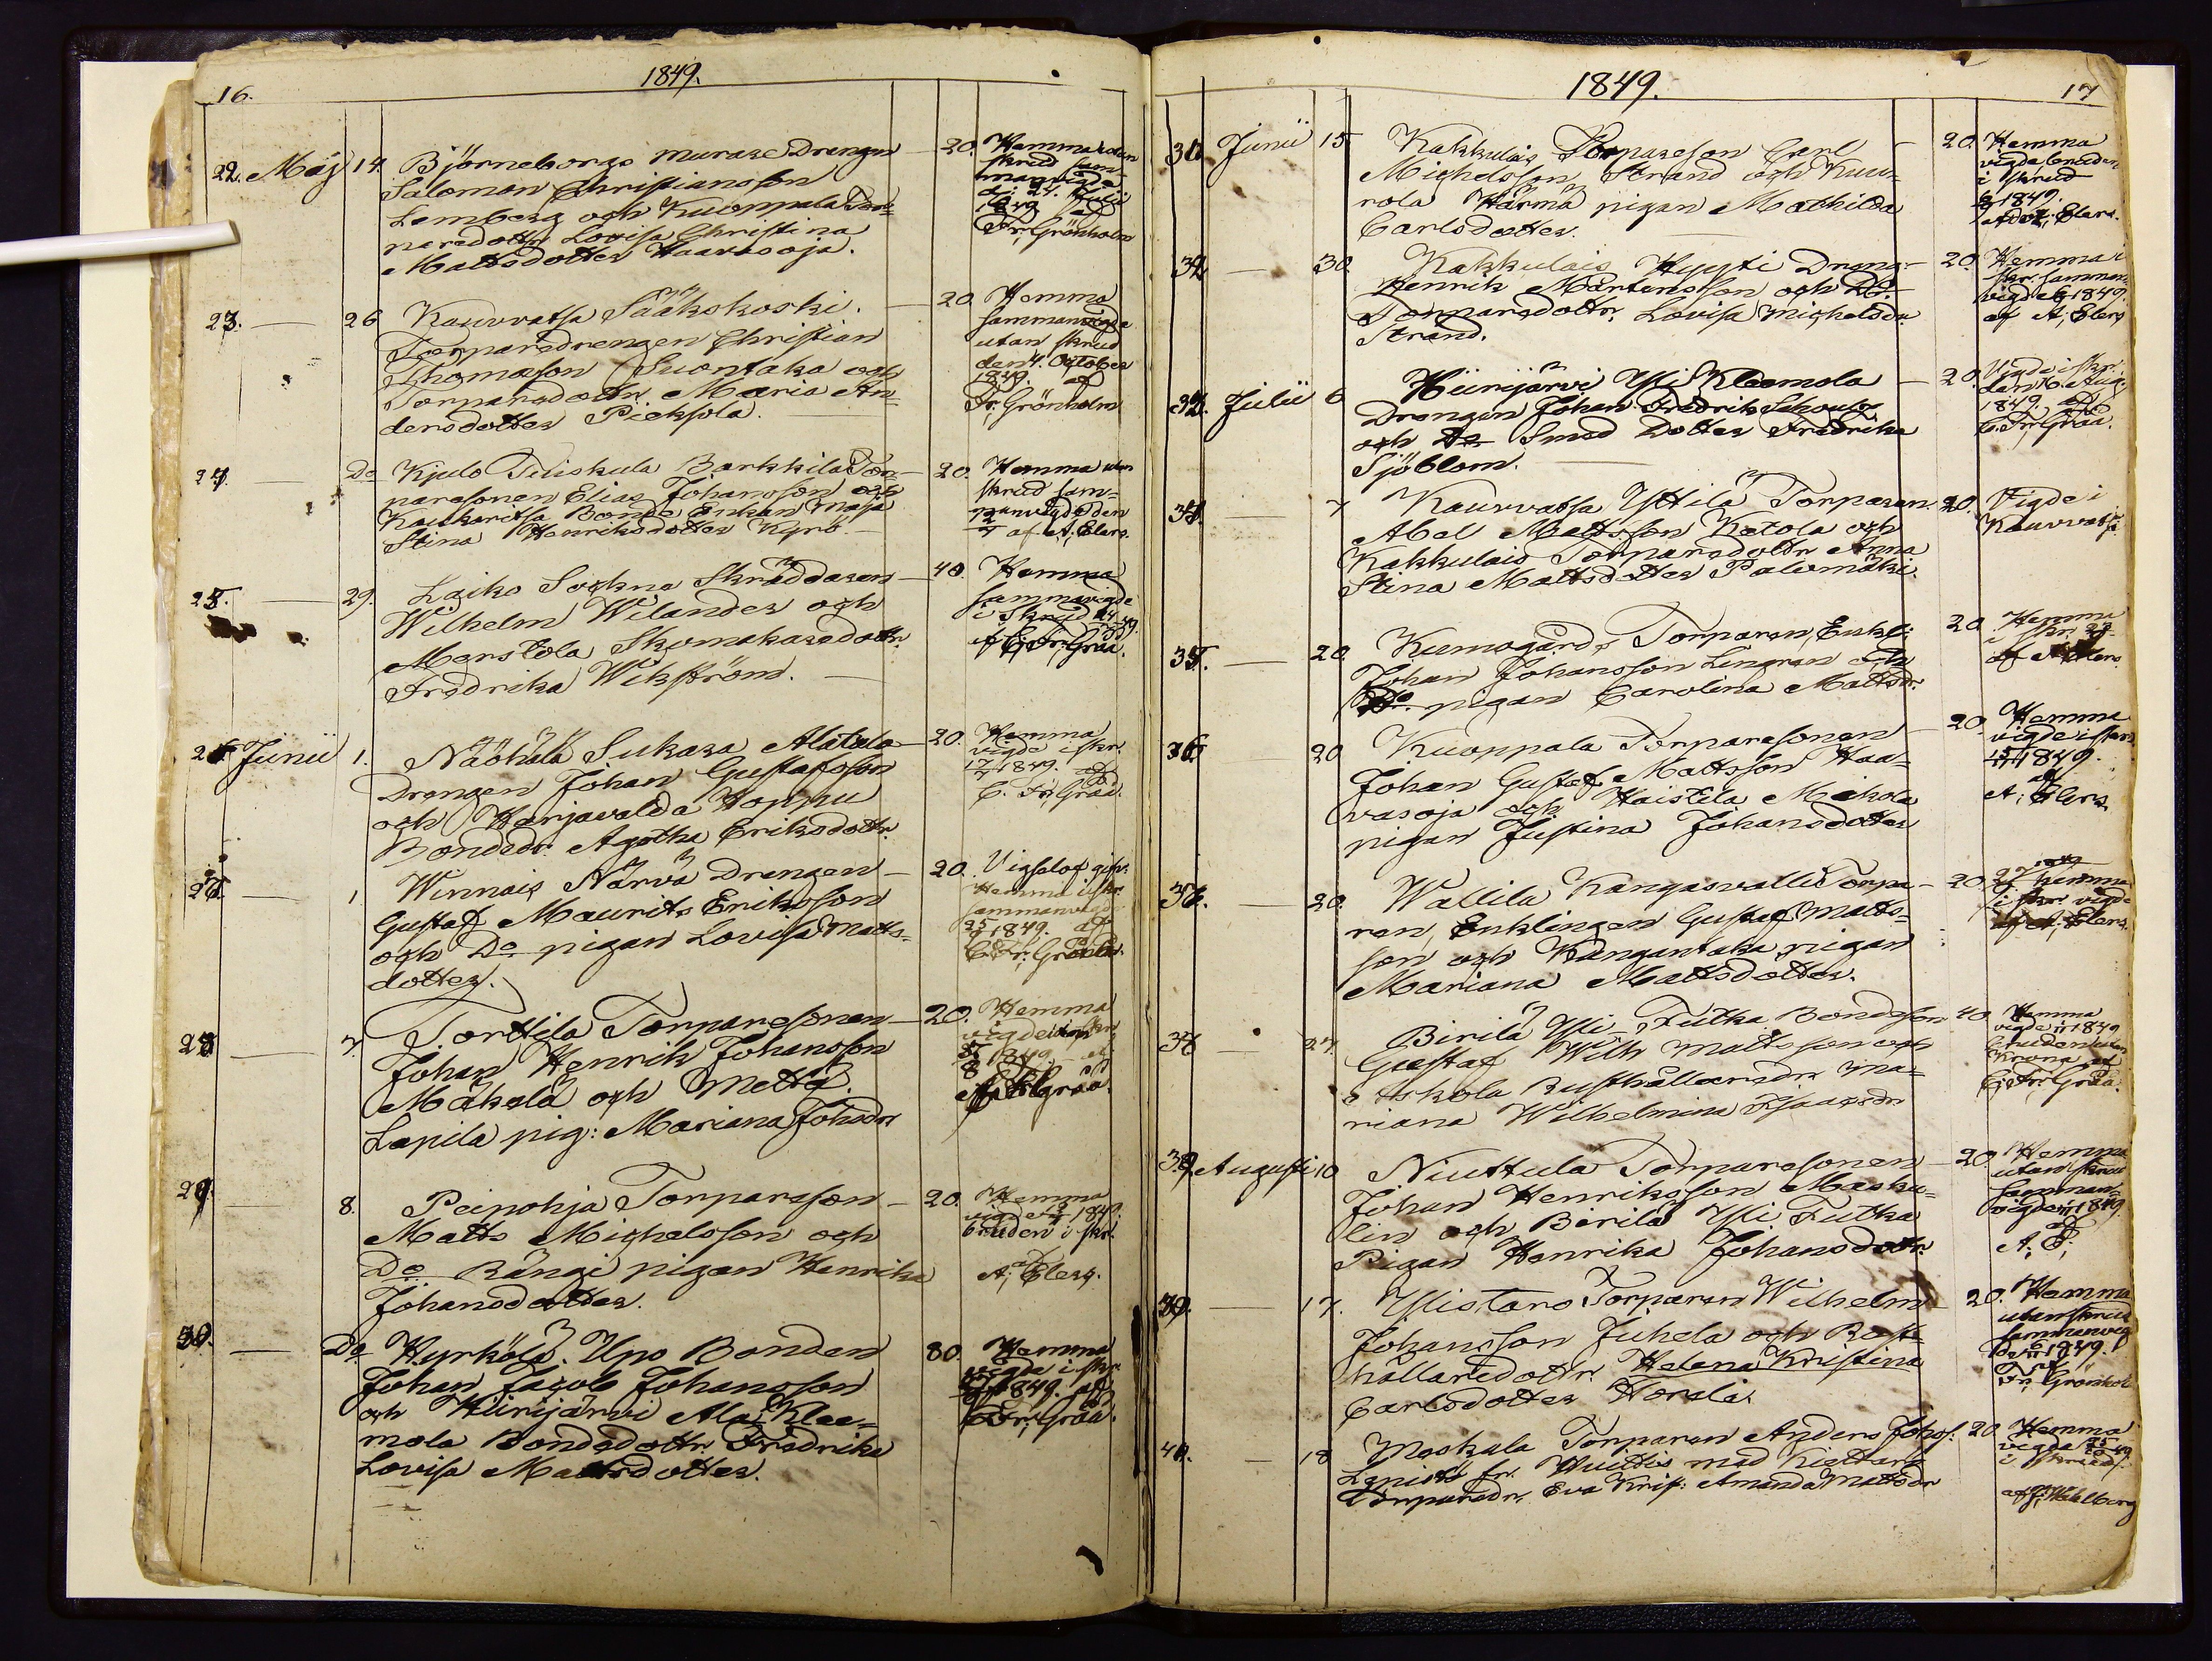 16.
1849.
22. Maj 14. Björneborgs murare Drengen
Salomon Christiansson
Lemberg och Kuoppala Tor-
paredottr Lovisa Christina
Mattsdotter Haavasoja.
20. Hemma utan
skrud sam-
manvigde
1849 af
Fr. Grönholm
23. 26 Kauvatsa Sääkskoski.
Torparedrengen Christian
Thomasson Suontaka och
Torparedottr Maria An-
dersdotter Pieksola.
20. Hemma
sammanvigde
utan skrud
den 4. October
1849. af
Fr. Grönholm
24. Do Kjulo Tiliskula Barkkila Tor-
paresonen Elias Johansson och
Kaukaritsa Bonde Enkan Maja
Stina Henriksdotter Kyrö.
20. Hemma utan
skrud sam-
manvigde den
af A; Elers.
25. 29. Laiko Sockne Skräddaren
Wilhelm Wilander och
Merstola Skomakaredottr.
Fredrika Wikström.
40. Hemma
sammanvigde
i Skrud
af C. Fr. Gråå.
26 Junii 1. Näähälä Sukara Alatalo
Drengen Johan Gustafsson
och Harjavalda Hoppu
Bondedr. Agatha Eriksdottr.
20. Hemma
vigde i skr.
1849. af
C. Fr. Gråå.
27. 1 Winnais Närvä Drengen
Gustaf Maurits Eriksson
och Do pigan Lovisa Matts-
dotter.
20. Hemma i skr
sammanvigd
1849. af
C. Fr. Gråå.
28 7. Torttila Torparesonen
Johan Henrik Johansson
Mäkelä och Mettä
Lapila pig: Mariana Johsdr
20. Hemma
vigde utan skr
1849 af
29. 8. Peipohja Torpareson
Matts Michelsson och
Do Rängi pigan Henrika
Johansdotter.
20. Hemma
vigde 1849.
bruden i skr.
af
A; Elers.
30. Do Hyrkölä Upo Bonden
Johan Jacob Johansson
och Hiirijärvi Ala Klee-
mola Bondedottr. Fredrika
Lovisa Mattsdotter.
80. Hemma
vigde i skr
1849. af
C. Fr. Gråå.
1849.
17
31 Junii 15 Kakkulais Torpareson Carl
Michelsson Strand och Kuu-
rola Härmä pigan Mathilda
Carlsdotter.
20. Hemma
vigde bruden
i skrud
1849.
af A; Elers.
32 30. Kakkulais Hyysti Dreng
Henrik Mårtensson och Do
Torparedottr. Lovisa Michelsdr.
Strand.
20. Hemma i
skr. samman-
vigde 1849.
af A; Elers
33. Julii 6 Hiirijärvi Yli Kleemola
Drengen Johan Fredrik
och Do Smed Dotter Fredrika
Sjöblom.
20. Vigde i skr.
den 16 Aug.
1849. af
C. Fr. Gråå.
34. 7 Kauvatsa Yttilä Torparen
Abel Mattsson Ketola och
Kakkulais Torparedottr Anna
Stina Mattsdotter Palomäki.
20. Vigde i
Kauvatsa
35. 20. Kumogårds Torparen, Enkl:
Johan Johansson Lingren och
Do pigan Carolina Mattsdr.
20. Hemma
i skr.
af A; Elers
36 20 Kuoppala Torparesonen
Johan Gustaf Mattsson Haa-
vasoja och Haistila Mikola
pigan Justina Johansdotter
20. Hemma
vigde i skr.
1849.
af
A; Elers
37. 20. Wallila Kangasvalli Torpa-
ren, Enklingen Gustaf Matts-
son och Kangantaka pigan
Mariana Mattsdotter.
20. Hemma
i skr. vigde
af A; Elers.
38 27. Birilä Yli Futka Bondeson
Gustaf Wilh Mattsson och
Askola Rusthållaredr. Ma-
riana Wilhelmina Isaacsdr
40. Hemma
vigde 1849
bruden utan
Krona af
C. Fr. Gråå.
39. Augusti 10 Niuttula Torparesonen
Johan Henriksson Masku-
lin och Birilä Yli Futka
Pigan Henrika Johansdottr.
20. Hemma
utan skrud
samman-
vigde 1849.
af
A; E;
39. 17. Ylistaro Torparen Wilhelm
Johansson Juhela och Rust-
hållaredottr. Helena Kristina
Carlsdotter Horelis
20. Hemma
utan skrud
sammanvig
1849.
af
Fr. Grönhol
40. 18 Maskula Torparen Anders Johs:
Lepistö fr. Huittis med Kiettare
Torparedr. Eva Kris: Amanda Mattsdr
20. Hemma
vigde
i skrud